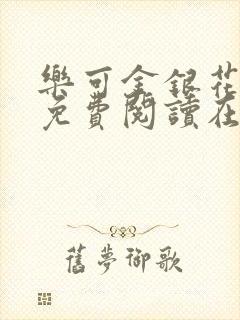 樂可金銀花
免費閱讀在
舊夢御歌